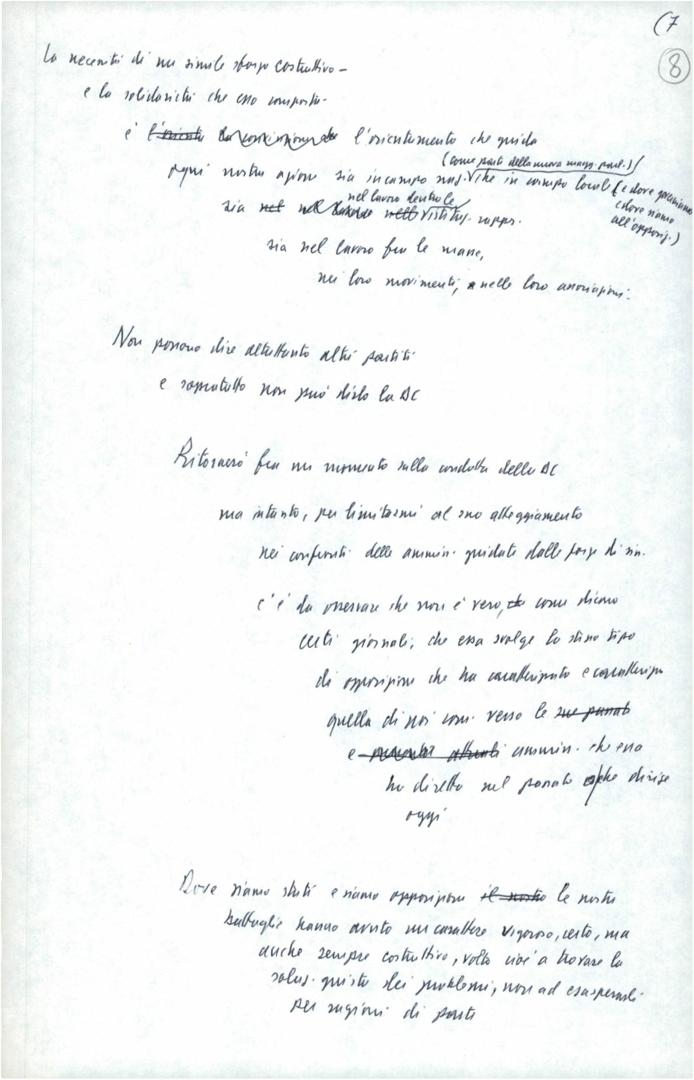 (7
8
La necessità di un simile sforzo costruttivo –
e la solidarietà che esso comporta –
è l'orientamento che guida
(come parte della nuova magg. parl.)
ogni nostra azione sia in campo naz. che in campo locale (e dove governiamo
e dove siamo
all'opposiz.)
nel lavoro dentro le
sia istituz. rappr.
sia nel lavoro fra le masse,
nei loro movimenti, nelle loro associazioni.
Non possono dire altrettanto altri partiti
e soprattutto non può dirlo la DC
Ritornerò fra un momento sulla condotta della DC
ma intanto, per limitarmi al suo atteggiamento
nei confronti delle ammin. guidate dalle forze di sin.
c'è da osservare che non è vero, come dicono
certi giornali, che essa svolge lo stesso tipo
di opposizione che ha caratterizzato e caratterizza
quella di noi com. verso le
ammin. che essa
ha diretto nel passato o che dirige
oggi
Dove siamo stati e siamo opposizione le nostre
battaglie hanno avuto un carattere vigoroso, certo, ma
anche sempre costruttivo, volto cioè a trovare la
soluz. giusta dei problemi, non ad esasperarli
per ragioni di parte